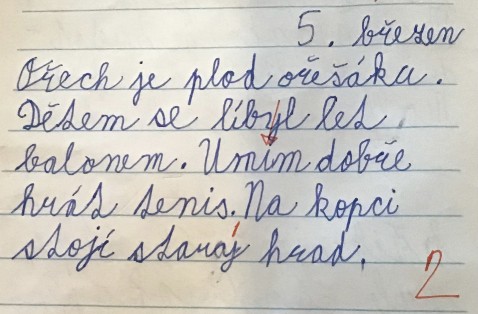 5. březen
Ořech je plod ořešáku.
Dětem se líbyl let
balonem. Umím dobře
hrát tenis. Na kopci
stojí starý hrad.
2